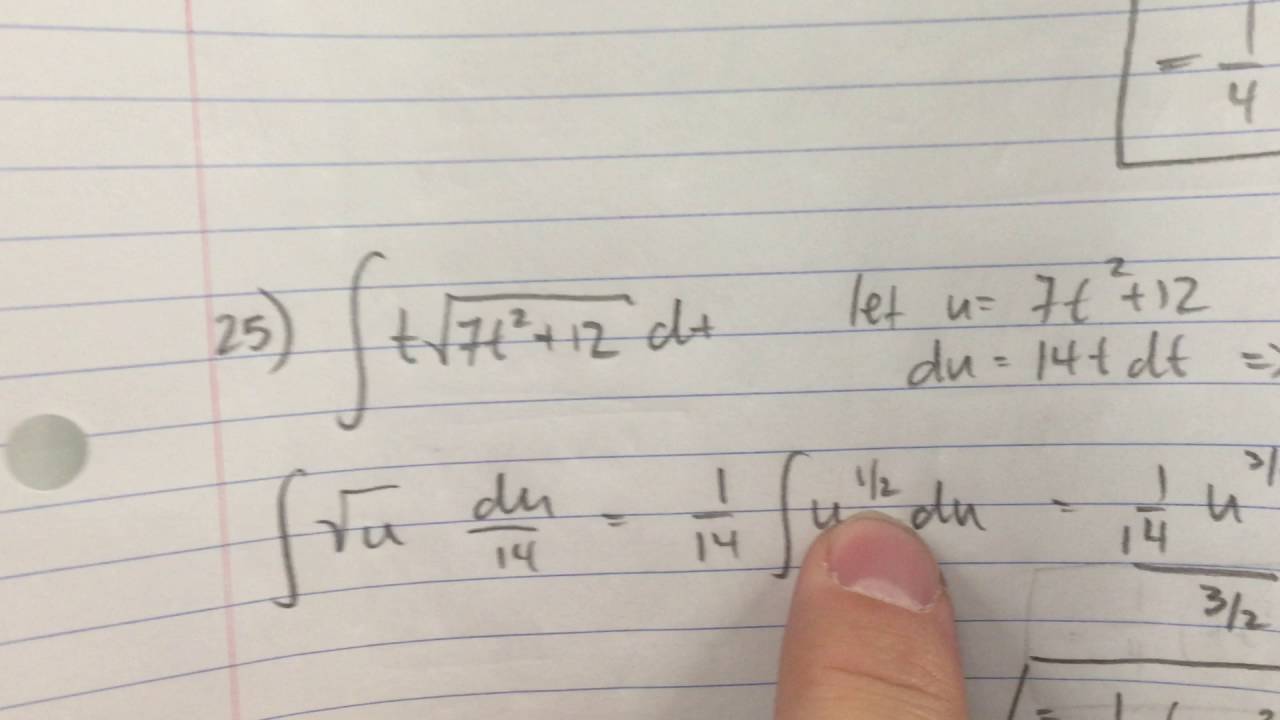 = 1/4
25) ∫ t√(7t²+12) dt let u = 7t²+12
du = 14t dt =>
∫ √u du/14 = 1/14 ∫ u^1/2 du = 1/14 u^3/
3/2